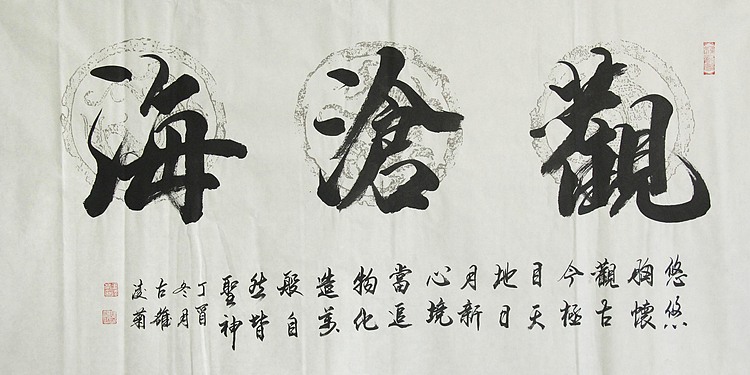 觀滄海
悠悠
胸懷
觀古
今極
目天
地日
月新
心境
當追
物化
造萬
般自
然皆
聖神
丁酉
冬月
古
凌菊